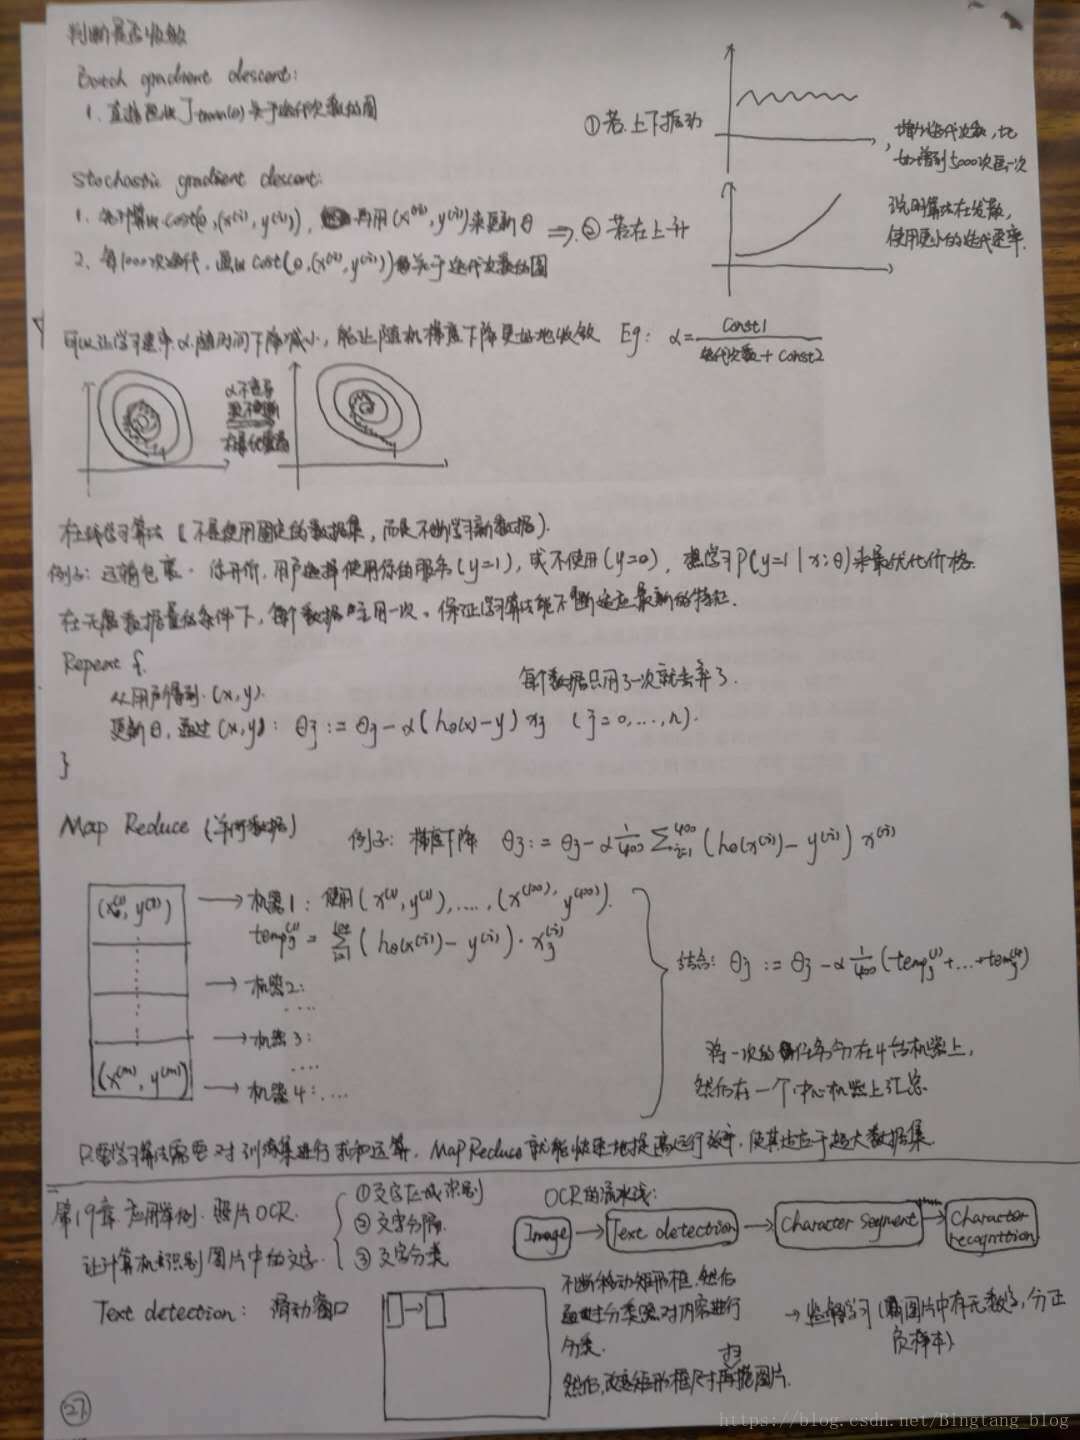 判断是否收敛
Batch gradient descent:
1. 直接画出 Jtrain(θ) 关于迭代次数的图
①若上下振动
增加迭代次数,比
如增到5000次画一次
Stochastic gradient descent:
1. 先计算出 cost(θ,(x⁽ⁱ⁾, y⁽ⁱ⁾)), 再用(x⁽ⁱ⁾, y⁽ⁱ⁾)来更新θ
⇒ ②若在上升
说明算法在发散,
使用更小的迭代速率.
2. 每1000次迭代, 画出 cost(θ,(x⁽ⁱ⁾, y⁽ⁱ⁾))关于迭代次数的图
可以让学习速率α随时间下降减小, 能让随机梯度下降更好地收敛 Eg: α = Const1 / (迭代次数 + Const2)
在线学习算法 (不是使用固定的数据集, 而是不断学习新数据).
例子: 运输包裹. 你开价, 用户选择使用你的服务(y=1), 或不使用(y=0), 想学习P(y=1|x;θ)来最优化价格.
在无限数据量的条件下, 每个数据只用一次. 保证学习算法能不断适应最新的特征.
Repeat {
每个数据只用了一次就丢弃了.
从用户得到 (x, y).
更新θ, 通过(x,y): θj := θj - α(hθ(x) - y) xj (j=0,...,n).
}
Map Reduce (并行数据)
例子: 梯度下降 θj := θj - α 1/400 Σ_{i=1}^{400} (hθ(x⁽ⁱ⁾) - y⁽ⁱ⁾) x⁽ⁱ⁾
(x⁽¹⁾, y⁽¹⁾) → 机器1: 使用(x⁽¹⁾, y⁽¹⁾), ...., (x⁽¹⁰⁰⁾, y⁽¹⁰⁰⁾).
tempj⁽¹⁾ = Σ_{i=1}^{100} (hθ(x⁽ⁱ⁾) - y⁽ⁱ⁾) · xj⁽ⁱ⁾
结合: θj := θj - α 1/400 (tempj⁽¹⁾ + ... + tempj⁽⁴⁾)
→ 机器2:
....
→ 机器3:
....
将一次的任务分在4台机器上,
(x⁽ᵐ⁾, y⁽ᵐ⁾) → 机器4: ....
然后在一个中心机器上汇总.
只要学习算法需要对训练集进行求和运算, MapReduce就能快速地提高运行效率, 使其适应于超大数据集.
第19章 应用举例. 照片OCR.
①文字区域识别
②文字分隔
③文字分类
让计算机识别图片中的文字.
OCR的流水线:
Image → Text detection → Character Segment → Character recognition
Text detection: 滑动窗口
不断移动矩形框, 然后
通过分类器对内容进行
分类.
然后, 改变矩形框尺寸再扫图片.
→ 监督学习 (图片中有无数字, 分正
负样本)
27
https://blog.csdn.net/Bingtang_blog